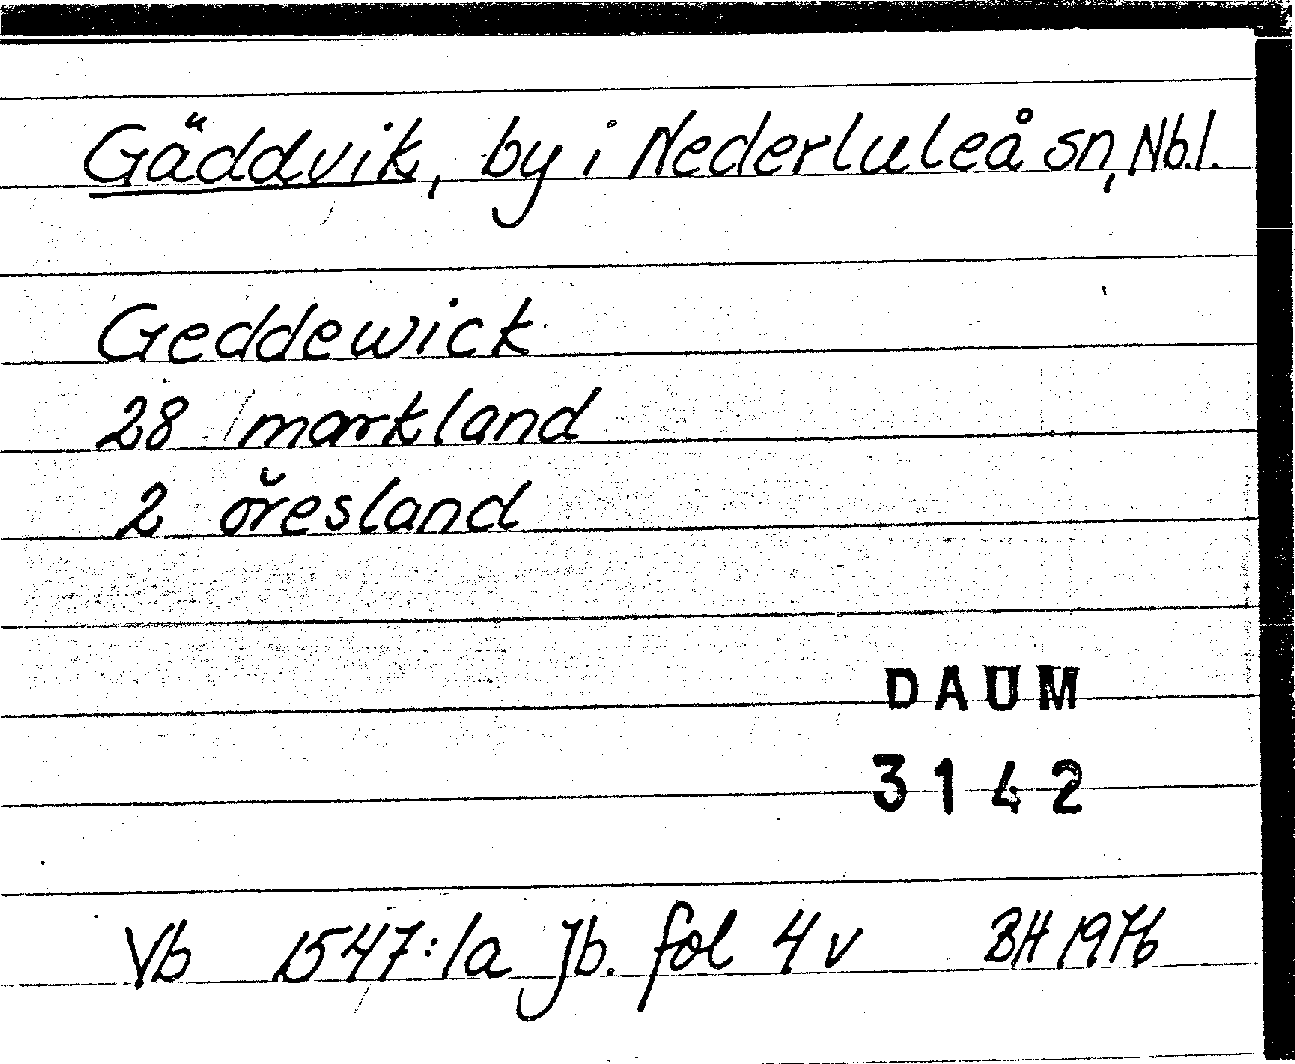 Gäddvik, by i Nederluleå sn, Nb.l.
Geddewick
28 markland
2 öresland
DAUM
3142
Vb 1547:1a Jb. fol 4 v BH 1976